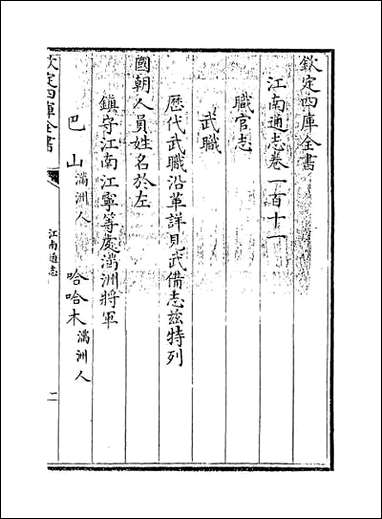 欽定四庫全書
江南通志卷一百十一
職官志
武職
歷代武職沿革詳見武備志兹特列
國朝人員姓名於左
鎮守江南江寧等處滿洲將軍
巴山滿洲人 哈哈木滿洲人
欽定四庫全書
江南通志